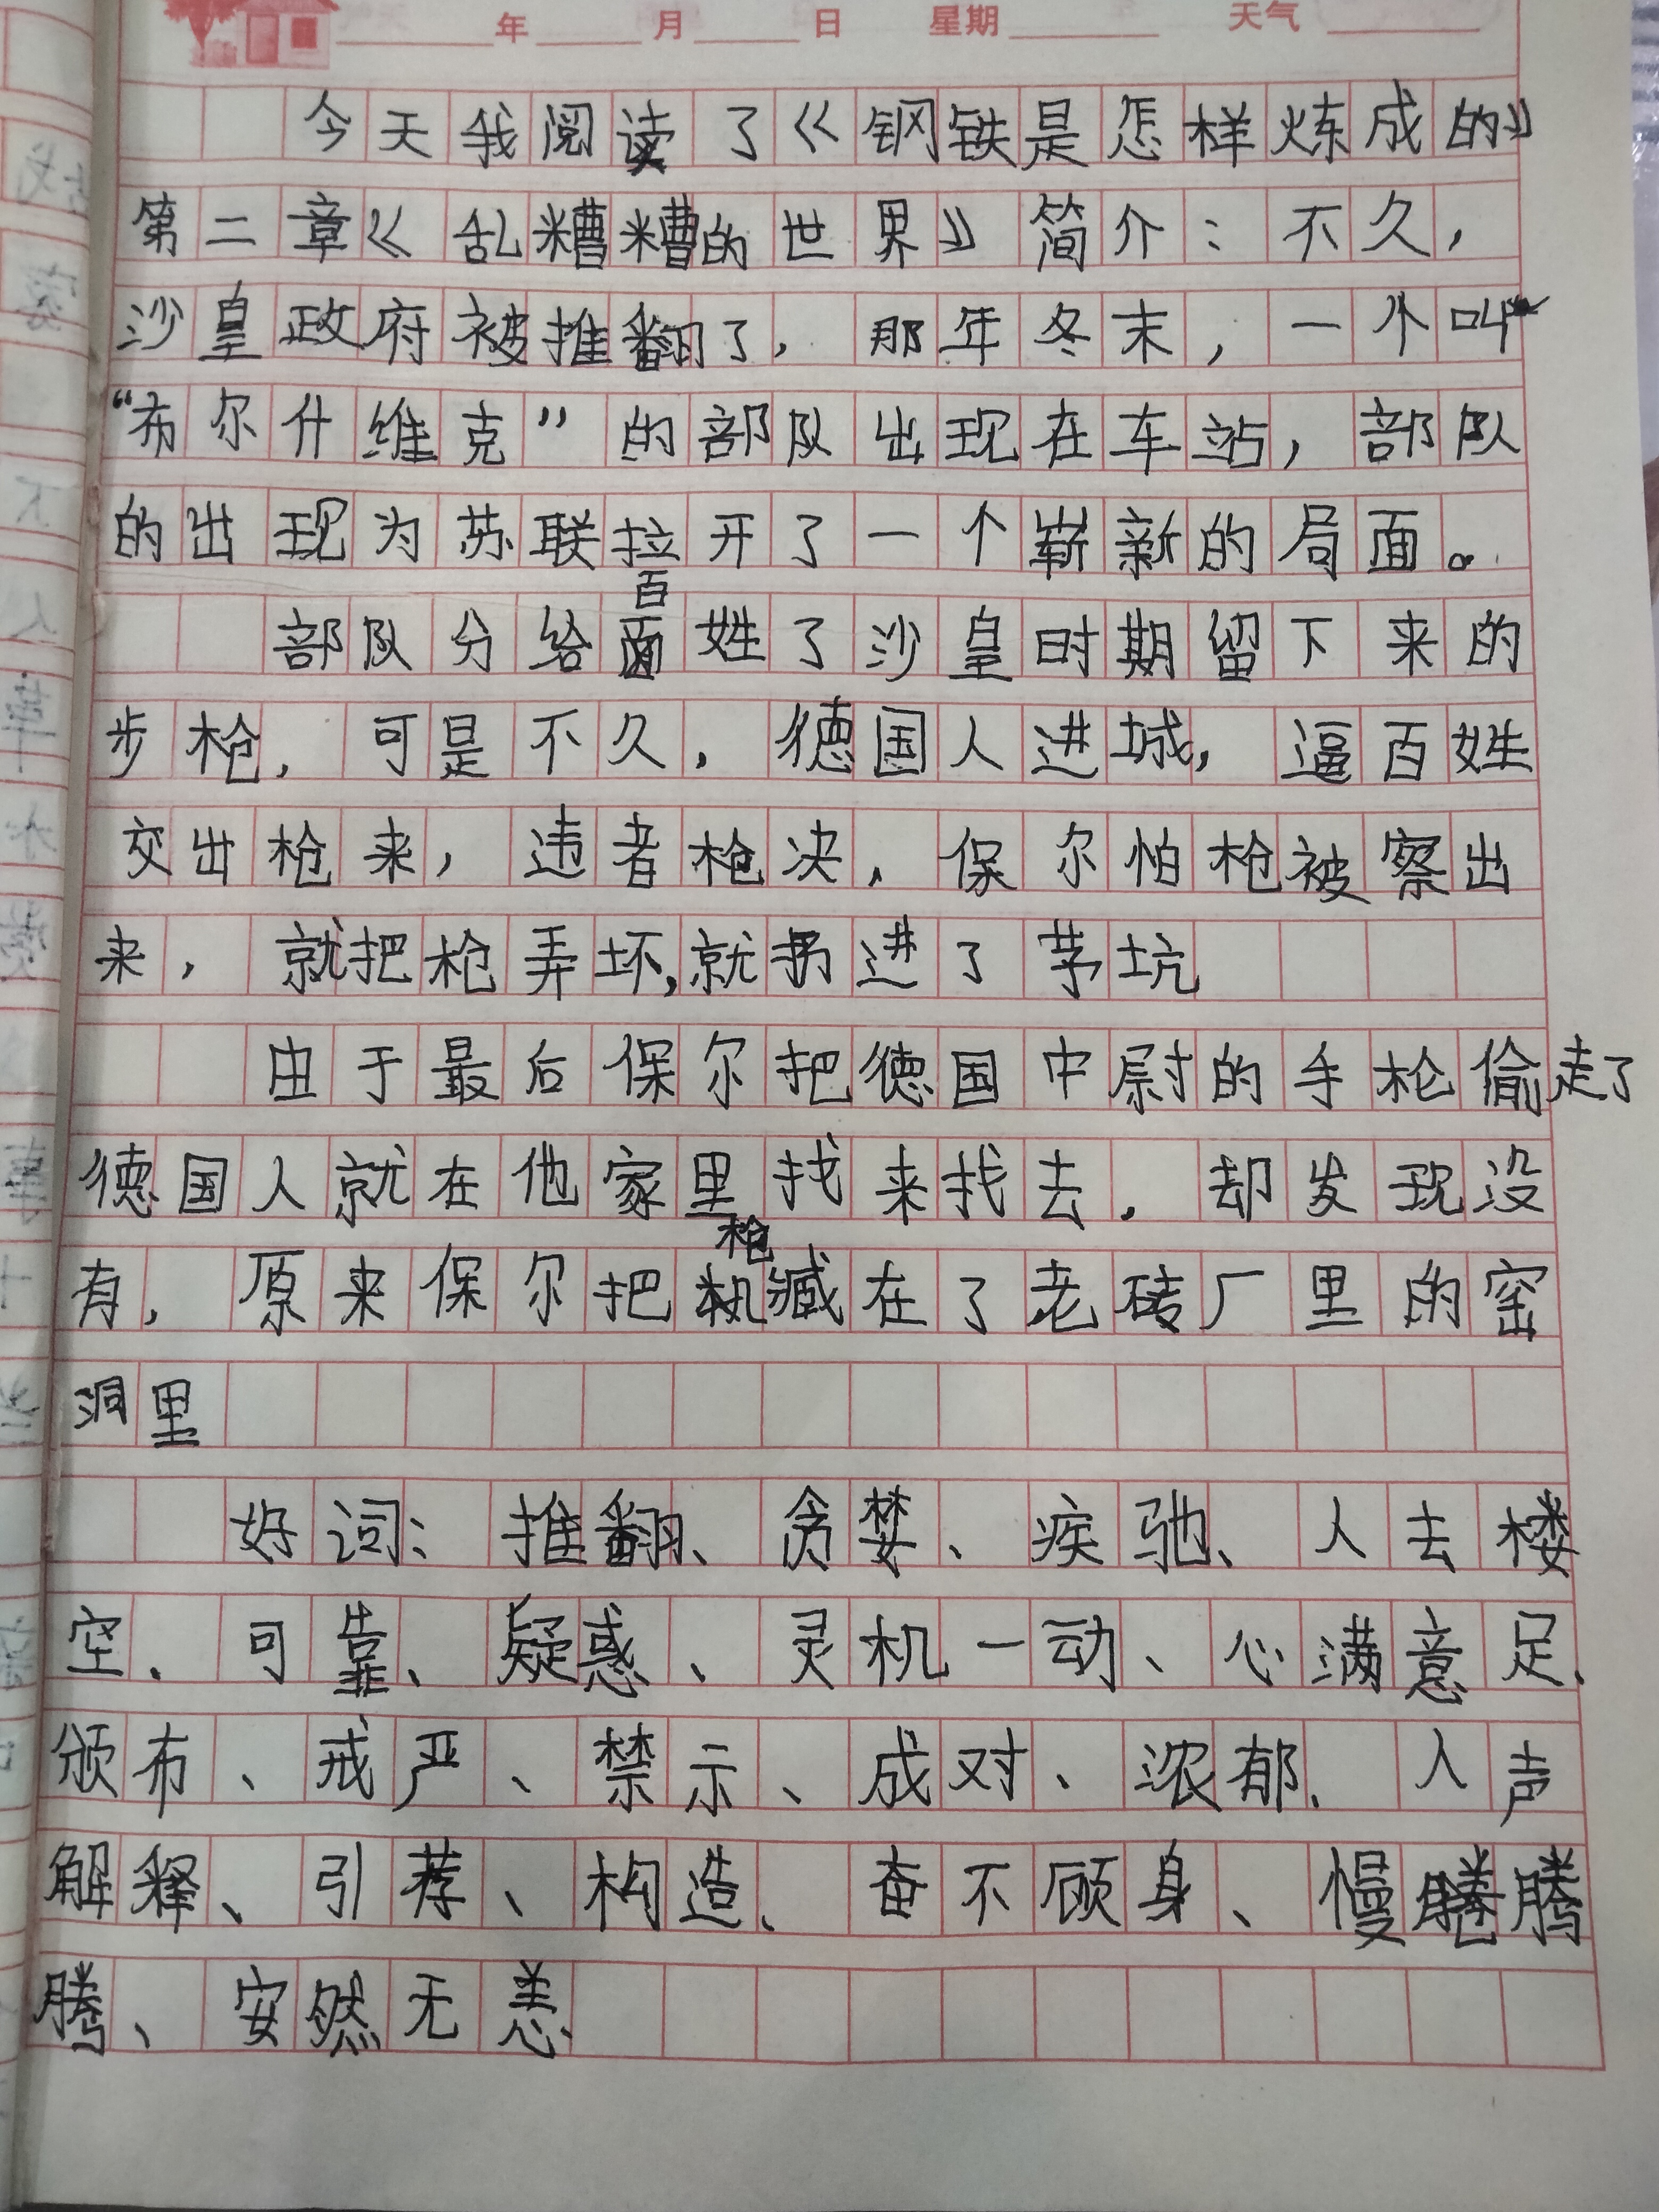 年 月 日 星期 天气
今天我阅读了《钢铁是怎样炼成的》
第二章《乱糟糟的世界》简介:不久,
沙皇政府被推翻了,那年冬末,一个叫
“布尔什维克”的部队出现在车站,部队
的出现为苏联拉开了一个崭新的局面。
部队分给百姓了沙皇时期留下来的
步枪,可是不久,德国人进城,逼百姓
交出枪来,违者枪决,保尔怕枪被察出
来,就把枪弄坏,就扔进了茅坑
由于最后保尔把德国中尉的手枪偷走了
德国人就在他家里找来找去,却发现没
有,原来保尔把枪藏在了老砖厂里的窑
洞里
好词:推翻、贪婪、疾驰、人去楼
空、可靠、疑惑、灵机一动、心满意足、
颁布、戒严、禁示、成对、浓郁、人声
解释、引荐、构造、奋不顾身、慢腾腾
腾、安然无恙